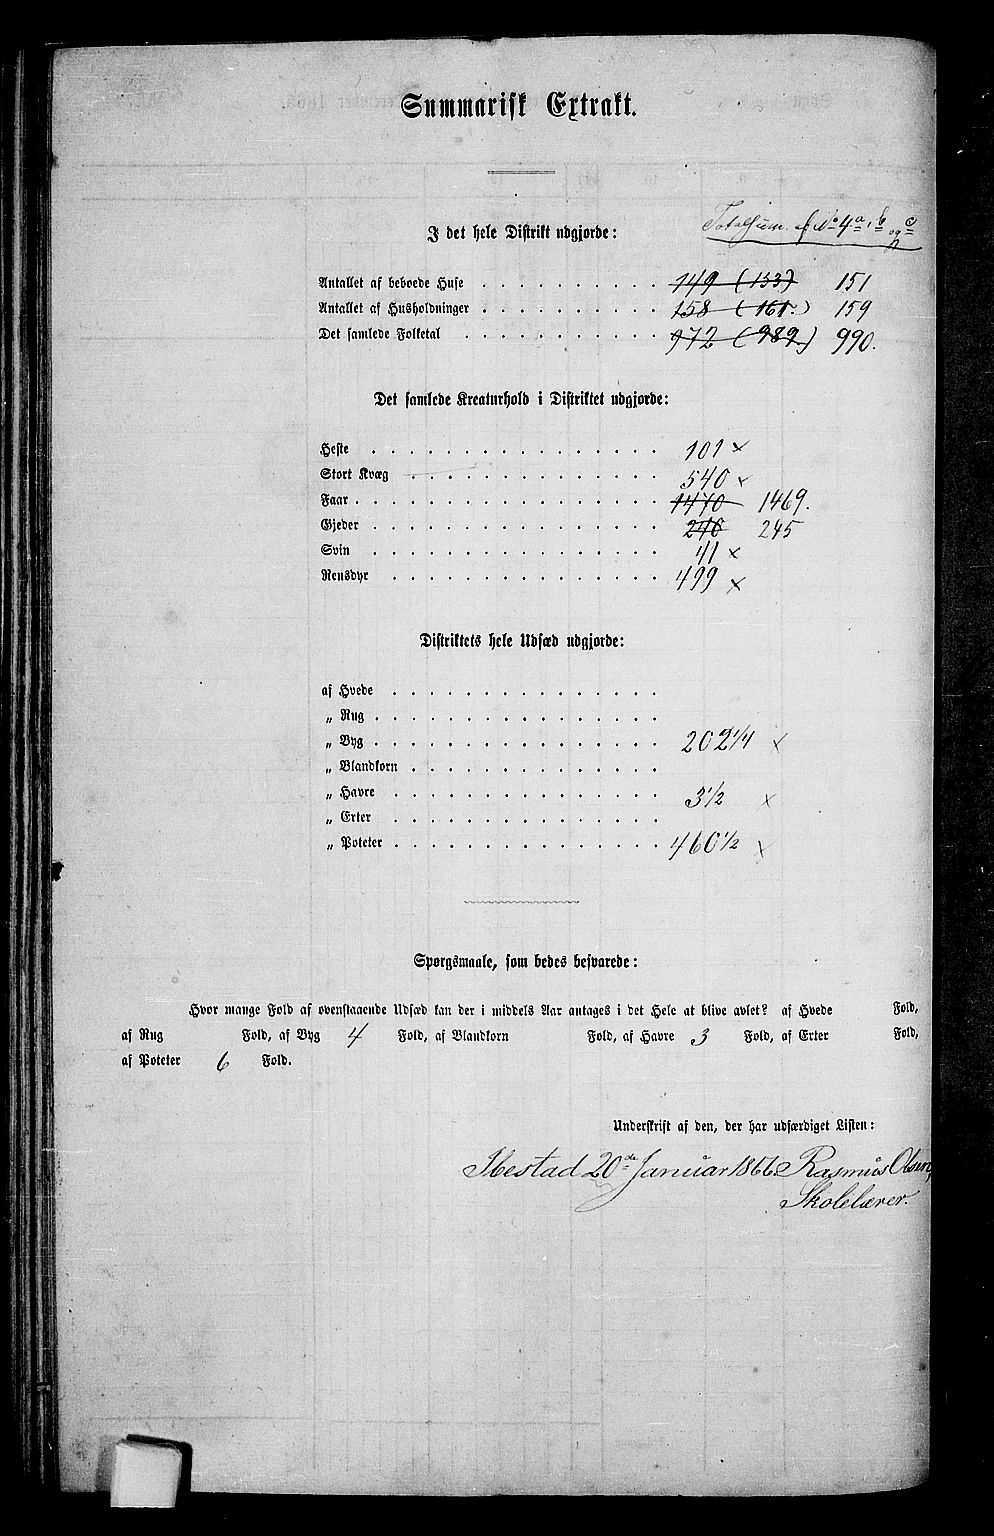 Summarisk Extrakt.
Totalsum. f No 4 a, b og c
I det hele Distrikt udgjorde:
Antallet af beboede Huse 149 (153) 151
Antallet af Husholdninger 158 (161.) 159
Det samlede Folketal 972 (989.) 990.
Det samlede Kreaturhold i Distriktet udgjorde:
Heste 101 ×
Stort Kvæg 540 ×
Faar 1470 1469.
Gjeder 246 245
Svin 41 ×
Rensdyr 499 ×
Distriktets hele Udsæd udgjorde:
af Hvede
„ Rug
„ Byg 202 1/4 ×
„ Blandkorn
„ Havre 3 1/2 ×
„ Erter
„ Poteter 460 1/2 ×
Spørgsmaale, som bedes besvarede:
Hvor mange Fold af ovenstaaende Udsæd kan der i middels Aar antages i det Hele at blive avlet? af Hvede Fold,
af Rug Fold, af Byg 4 Fold, af Blandkorn Fold, af Havre 3 Fold, af Erter Fold,
af Poteter 6 Fold.
Underskrift af den, der har udfærdiget Listen:
Ibestad 20de Januar 1866. Rasmus Olsen,
Skolelærer.